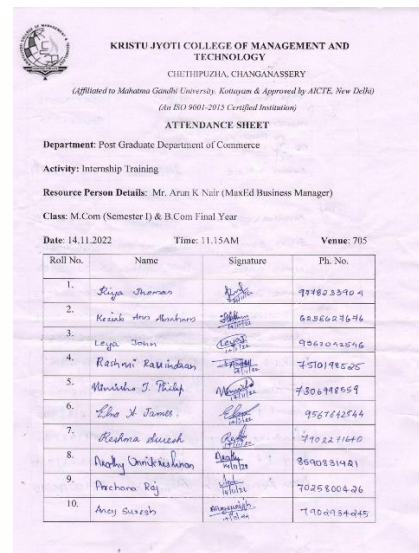 KRISTU JYOTI COLLEGE OF MANAGEMENT AND
TECHNOLOGY
CHETHIPUZHA, CHANGANASSERY
(Affiliated to Mahatma Gandhi University, Kottayam & Approved by AICTE, New Delhi)
(An ISO 9001-2015 Certified Institution)
ATTENDANCE SHEET
Department: Post Graduate Department of Commerce
Activity: Internship Training
Resource Person Details: Mr. Arun K Nair (MaxEd Business Manager)
Class: M.Com (Semester I) & B.Com Final Year
Date: 14.11.2022 Time: 11.15AM Venue: 705
Roll No. Name Signature Ph. No.
1. Riya Thomas
2. Keziah Ann Abraham 6238627676
3. Leya John
4. Rashmi Ravindaan 7510198525
5. J. Philip 7306998559
6. James. 9567642544
7. Reshma Suresh 7902271640
8. Arathy Unnikrishnan 8590831421
9. Archana Raj 7025800426
10. Ancy Suresh 7902934245